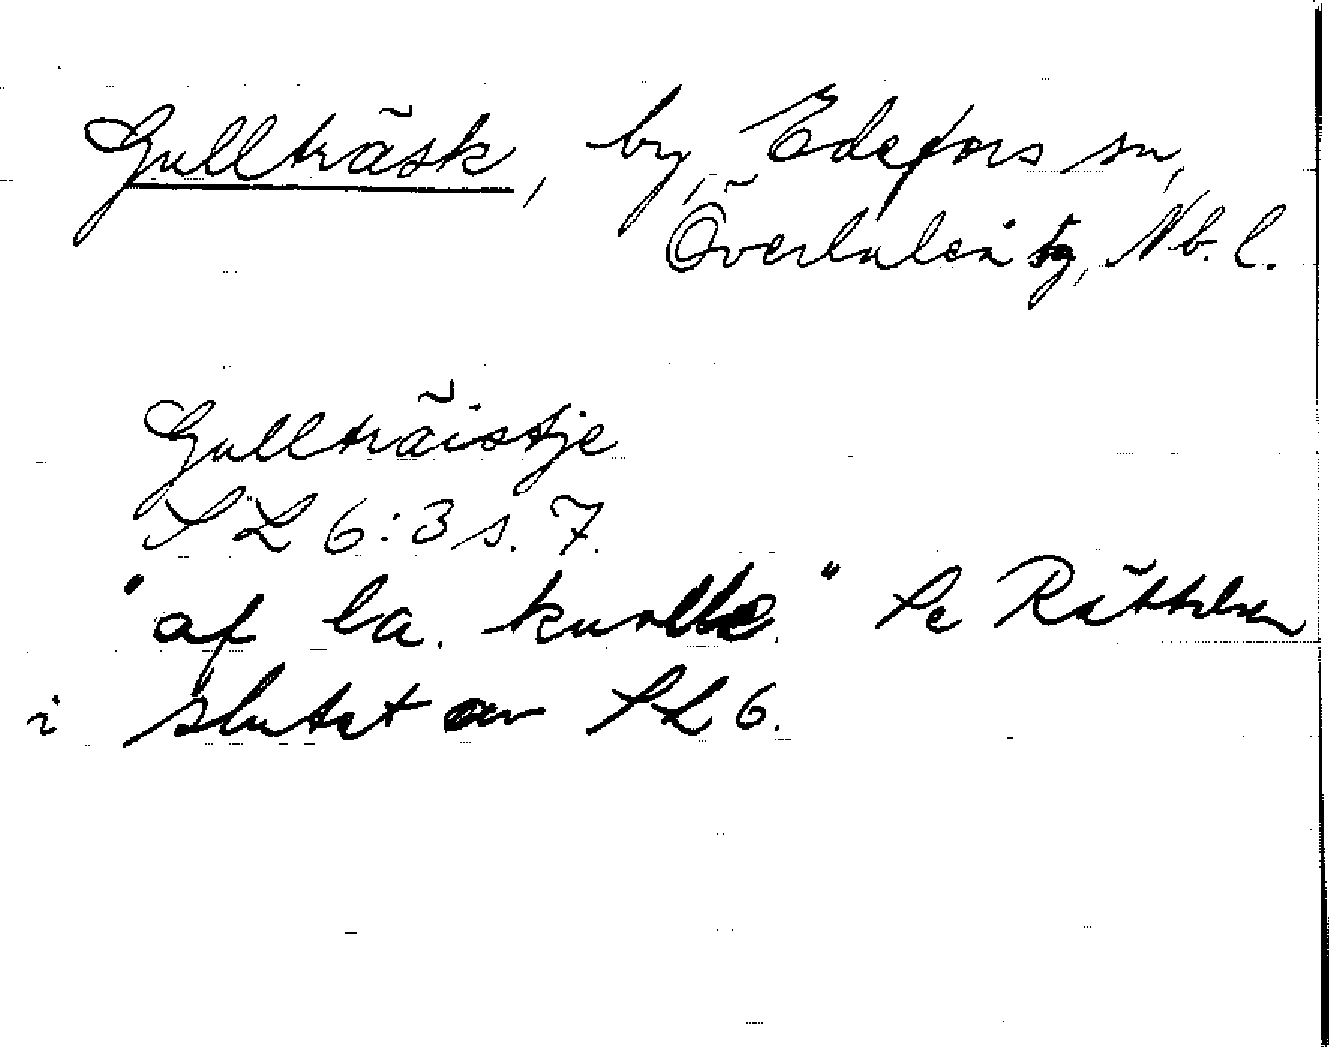 Gullträsk, by, Edefors sn,
Överluleå tg, Nb. l.
Gullträistje
SL 6:3 s. 7.
"af la. kurlle." Se Rättelser
i slutet av SL 6.